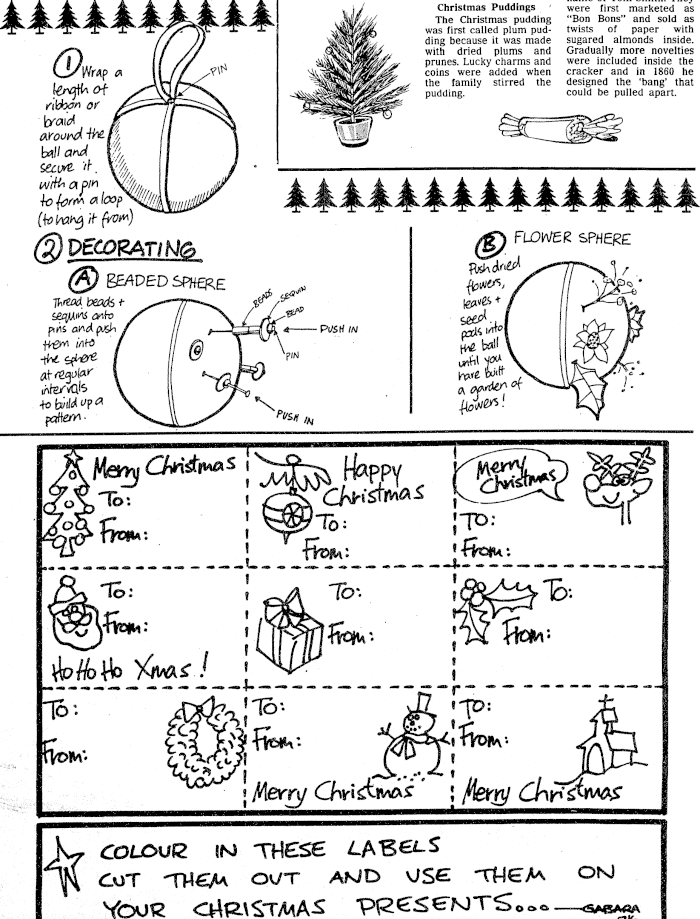 Christmas Puddings
The Christmas pudding
was first called plum pud-
ding because it was made
with dried plums and
prunes. Lucky charms and
coins were added when
the family stirred the
pudding.
were first marketed as
"Bon Bons" and sold as
twists of paper with
sugared almonds inside.
Gradually more novelties
were included inside the
cracker and in 1860 he
designed the 'bang' that
could be pulled apart.
1 Wrap a
length of
ribbon or
braid
around the
ball and
secure it
with a pin
to form a loop
(to hang it from)
PIN
2 DECORATING
A BEADED SPHERE
Thread beads +
sequins onto
pins and push
them into
the sphere
at regular
intervals
to build up a
pattern.
BEADS
SEQUIN
BEAD
PUSH IN
PIN
PUSH IN
B FLOWER SPHERE
Push dried
flowers,
leaves +
seed
pods into
the ball
until you
have built
a garden of
flowers!
Merry Christmas
To:
From:
Happy
Christmas
To:
From:
Merry
Christmas
To:
From:
To:
From:
Ho Ho Ho Xmas!
To:
From:
To:
From:
To:
From:
To:
From:
Merry Christmas
To:
From:
Merry Christmas
COLOUR IN THESE LABELS
CUT THEM OUT AND USE THEM ON
YOUR CHRISTMAS PRESENTS...
GABARA